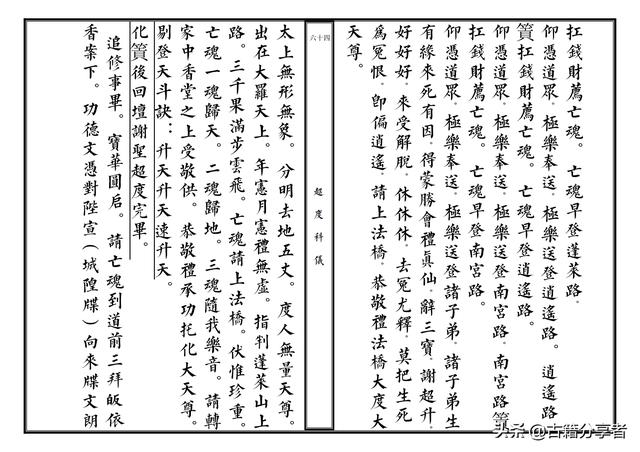 扛錢財薦亡魂。　亡魂早登蓬萊路.
仰憑道眾.極樂奉送.極樂送登逍遙路.　逍遙路
篢扛錢財薦亡魂。　亡魂早登逍遙路。
仰憑道眾.極樂奉送.極樂送登南宮路.　南宮路篢
扛錢財薦亡魂。　亡魂早登南宮路。
仰憑道眾.極樂奉送.極樂送登諸子弟.諸子弟生
有緣來死有因.得蒙勝會禮真仙.辭三寶.謝超升.
好好好.來受解脫.休休休.去冤尤釋.莫把生死
為冤恨.即偏逍遙.請上法橋.恭敬禮法橋大度大
天尊。
六十四
超度科儀
太上無形無象。分明去地五丈。度人無量天尊。
出在大羅天上。年憲月憲禮無虛。指判蓬萊山上
路。三千果滿步雲飛。亡魂請上法橋。伏惟珍重。
亡魂一魂歸天。二魂歸地。三魂隨我樂音。請轉
家中香堂之上受敬供。恭敬禮承功托化大天尊。
剔登天斗訣：升天升天速升天。
化篢後回壇謝聖超度完畢。
追修事畢。寶華圓启。請亡魂到道前三拜皈依
香案下。功德文憑對陛宣（城隍牒）向來牒文朗
头条 @古籍分享者